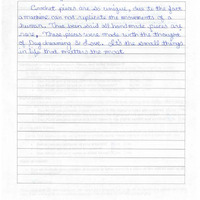 Crochet pieces are so unique, due to the fact
a machine can not replicate the movements of a
human. Thus been said all handmade pieces are
rare. These pieces were made with the thought
of Day dreaming is love. It's the small things
in life that matters the most.